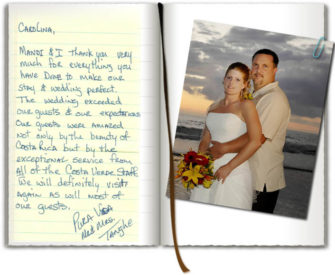 CAROLINA,
MANDI & I THANK YOU VERY
MUCH FOR EVERYTHING YOU
HAVE DONE TO MAKE OUR
STAY & WEDDING PERFECT.
THE WEDDING EXCEEDED
OUR GUESTS & OUR EXPECTATIONS
OUR GUESTS WERE AMAZED
NOT ONLY BY THE BEAUTY OF
COSTA RICA BUT BY THE
EXCEPTIONAL SERVICE FROM
All OF THE COSTA VERDE STAFF
WE WILL DEFINITELY VISIT
AGAIN AS WILL MOST OF
OUR GUESTS.
PURA VIDA
AND MRS.
TANGHE